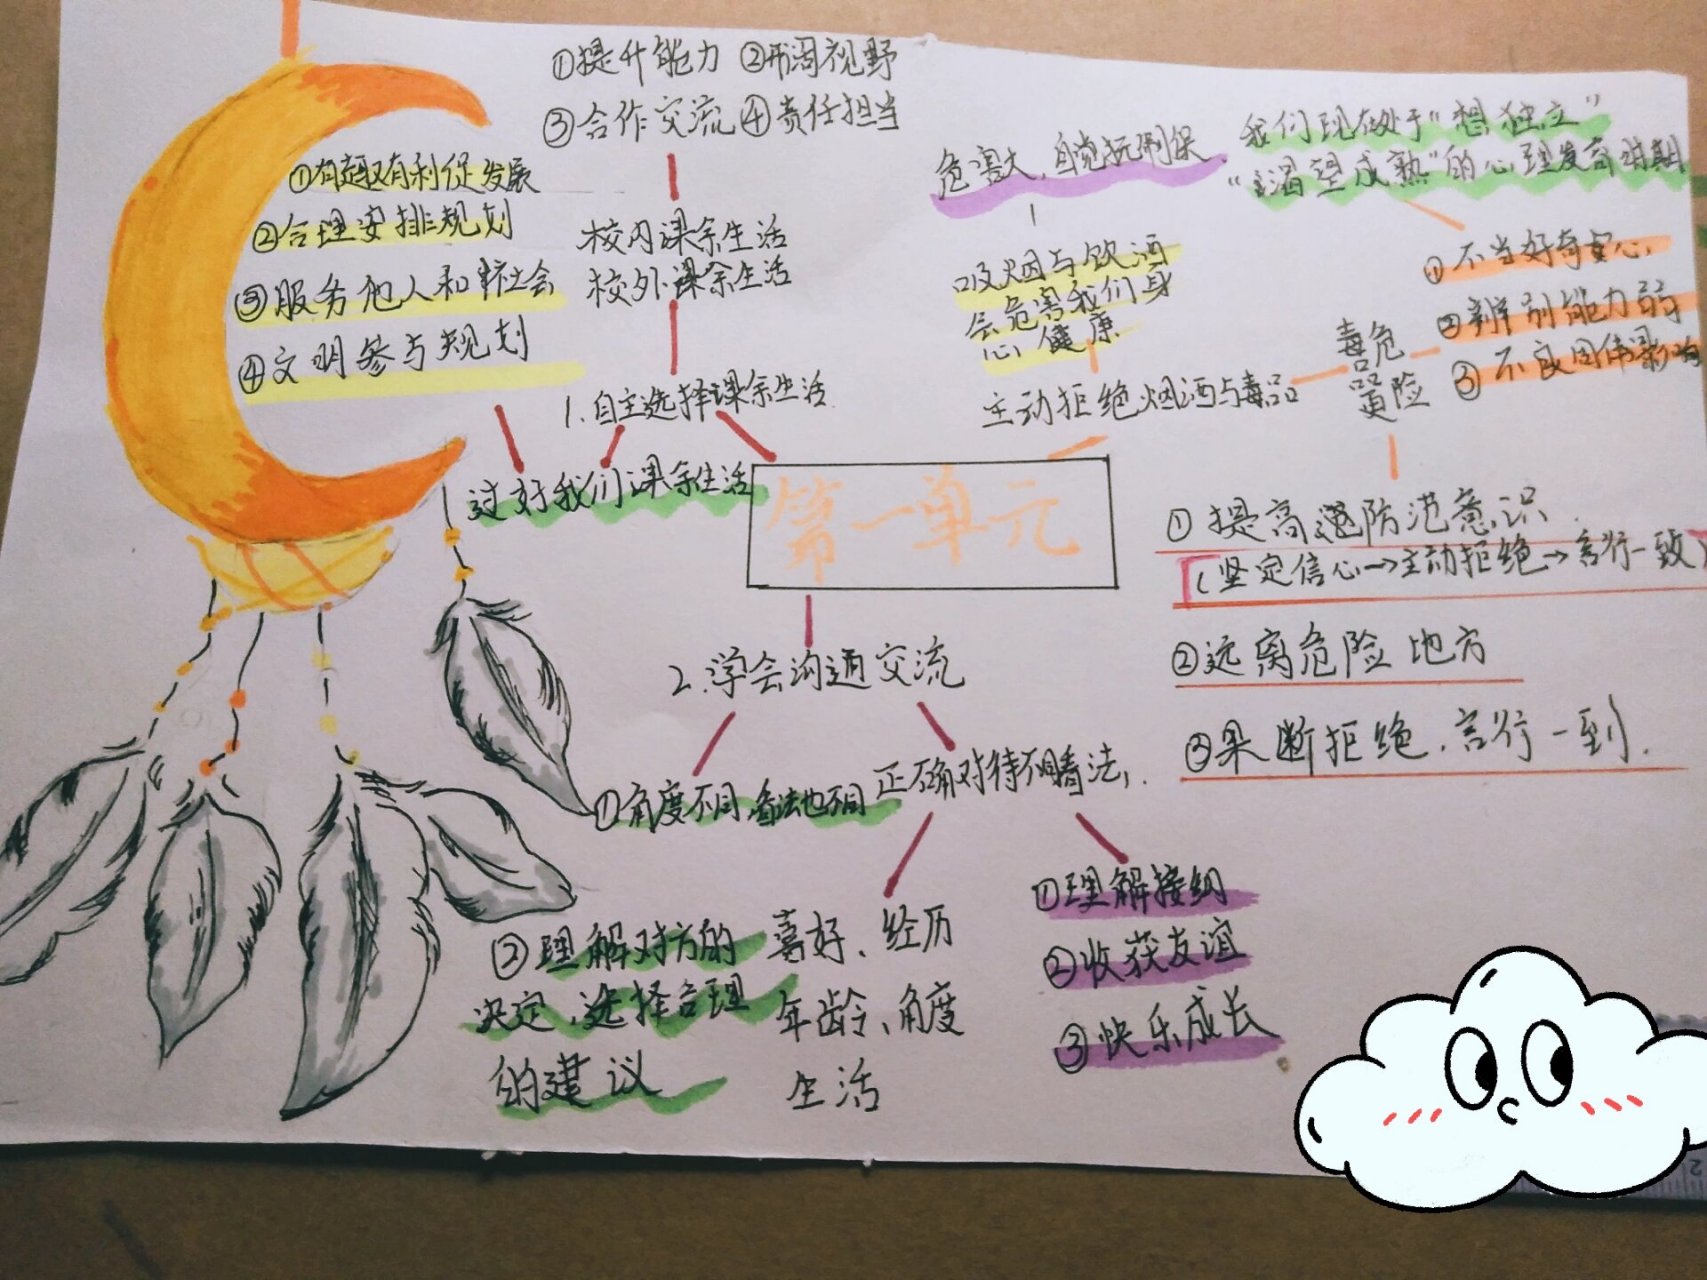 ①提升能力 ②开阔视野
③合作交流 ④责任担当
校内课余生活
校外课余生活
1.自主选择课余生活
①有益有利促发展
②合理安排规划
③服务他人和社会
④文明参与规划
过好我们课余生活
第一单元
危害大,自觉抵制保
吸烟与饮酒
会危害我们身
心健康
主动拒绝烟酒与毒品
我们现在处于"想独立"
"渴望成熟"的心理发育时期
毒危
品险
①不当好奇心,
②辨别能力弱
③不良因素影响
①提高防范意识
(坚定信心→主动拒绝→言行一致)
②远离危险地方
③果断拒绝.言行一到.
2.学会沟通交流
①角度不同,看法也不同
正确对待不同看法,
②理解对方的
决定,选择合理
的建议
喜好、经历
年龄、角度
生活
①理解接纳
②收获友谊
③快乐成长